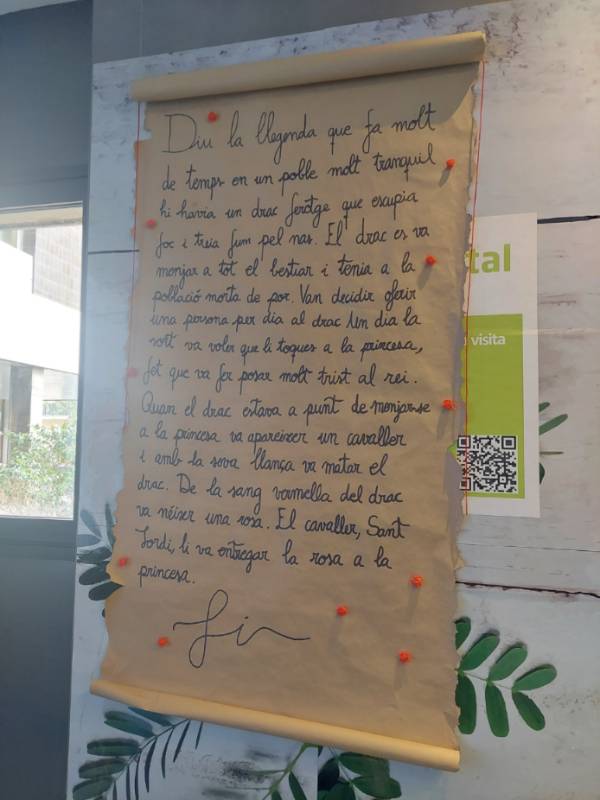 Diu la llegenda que fa molt
de temps en un poble molt tranquil
hi havia un drac ferotge que escupia
foc i treia fum pel nas. El drac es va
menjar a tot el bestiar i tenia a la
població morta de por. Van decidir oferir
una persona per dia al drac Un dia la
sort va voler que li toques a la princesa,
fet que va fer posar molt trist al rei.
Quan el drac estava a punt de menjar-se
a la princesa va apareixer un cavaller
i amb la seva llança va matar el
drac. De la sang vermella del drac
va néixer una rosa. El cavaller, Sant
Jordi, li va entregar la rosa a la
princesa.
Fi
tal
visita